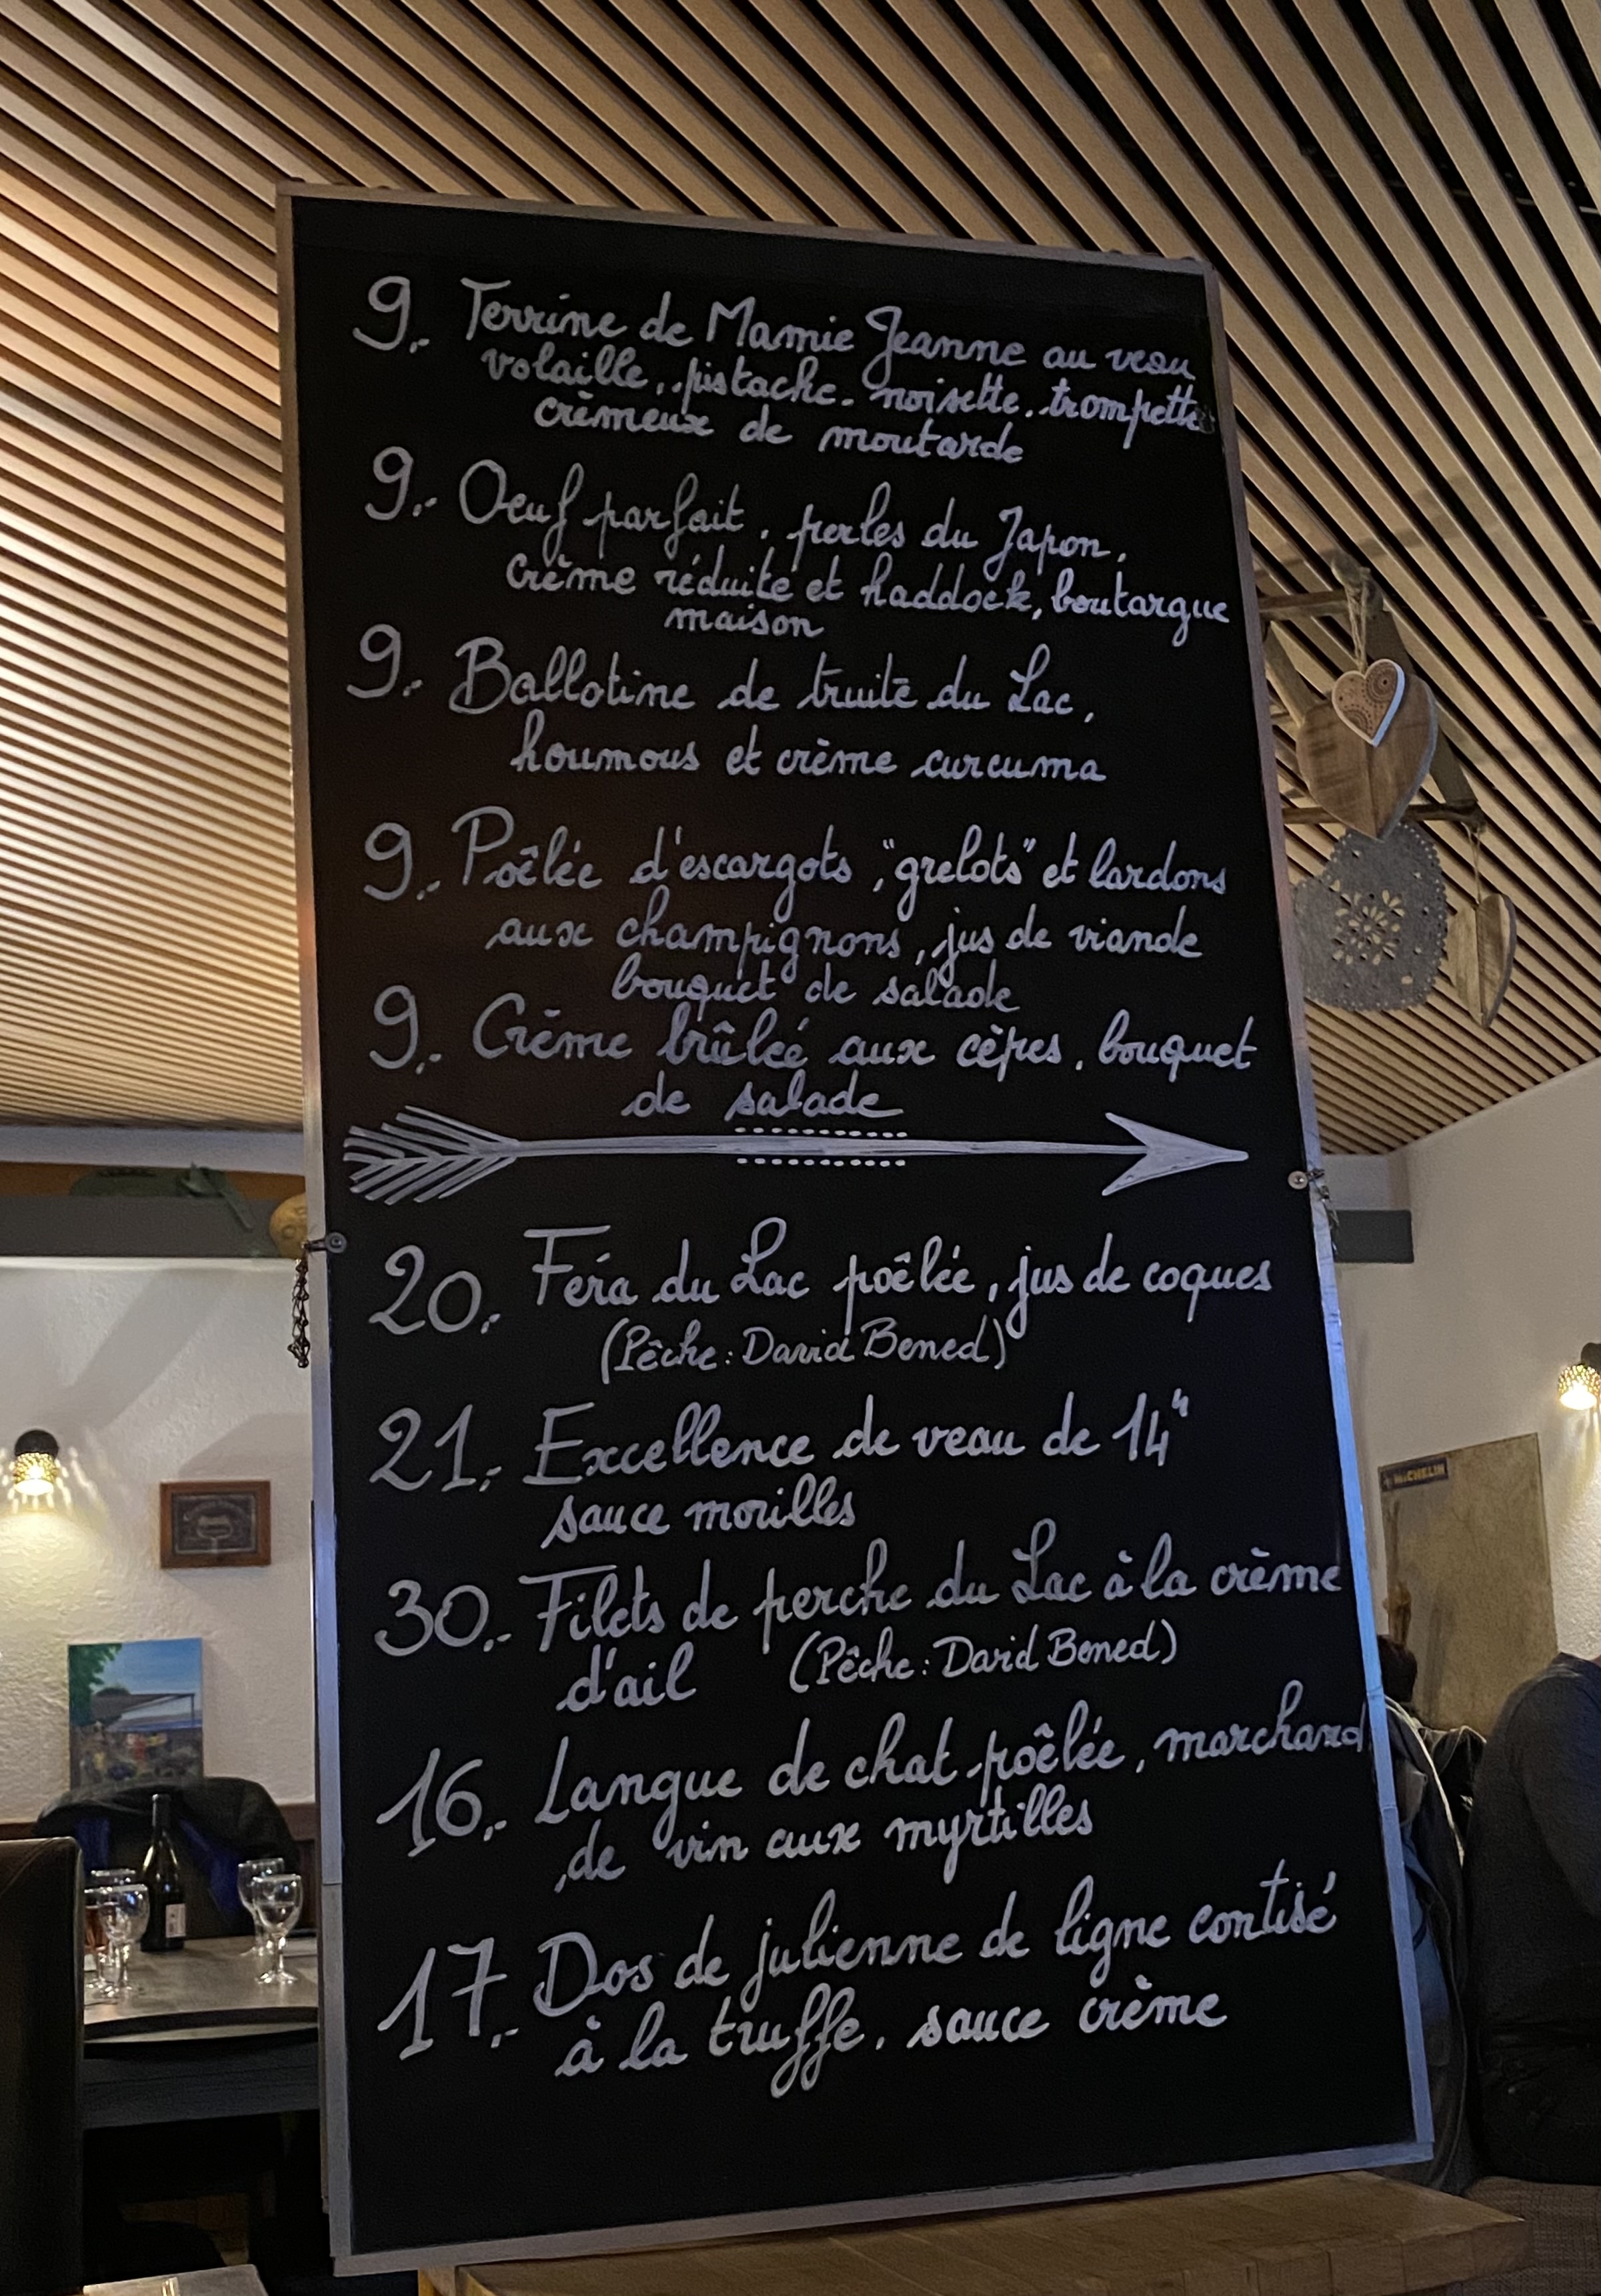 9.- Terrine de Mamie Jeanne au veau
volaille, pistache. noisette. trompettes
crèmeux de moutarde
9.- Oeuf parfait, perles du Japon,
Crème réduite et haddock, boutargue
maison
9.- Ballotine de truite du Lac,
houmous et crème curcuma
9.- Poêlée d'escargots, "grelots" et lardons
aux champignons, jus de viande
bouquet de salade
9.- Crème brûlée aux cèpes, bouquet
de salade
20.- Féra du Lac poêlée, jus de coques
(Pêche: David Bened)
21.- Excellence de veau de 14"
sauce morilles
30.- Filets de perche du Lac à la crème
d'ail (Pêche: David Bened)
16.- Langue de chat poêlée, marchand
de vin aux myrtilles
17.- Dos de julienne de ligne contisé
à la truffe, sauce crème
MICHELIN